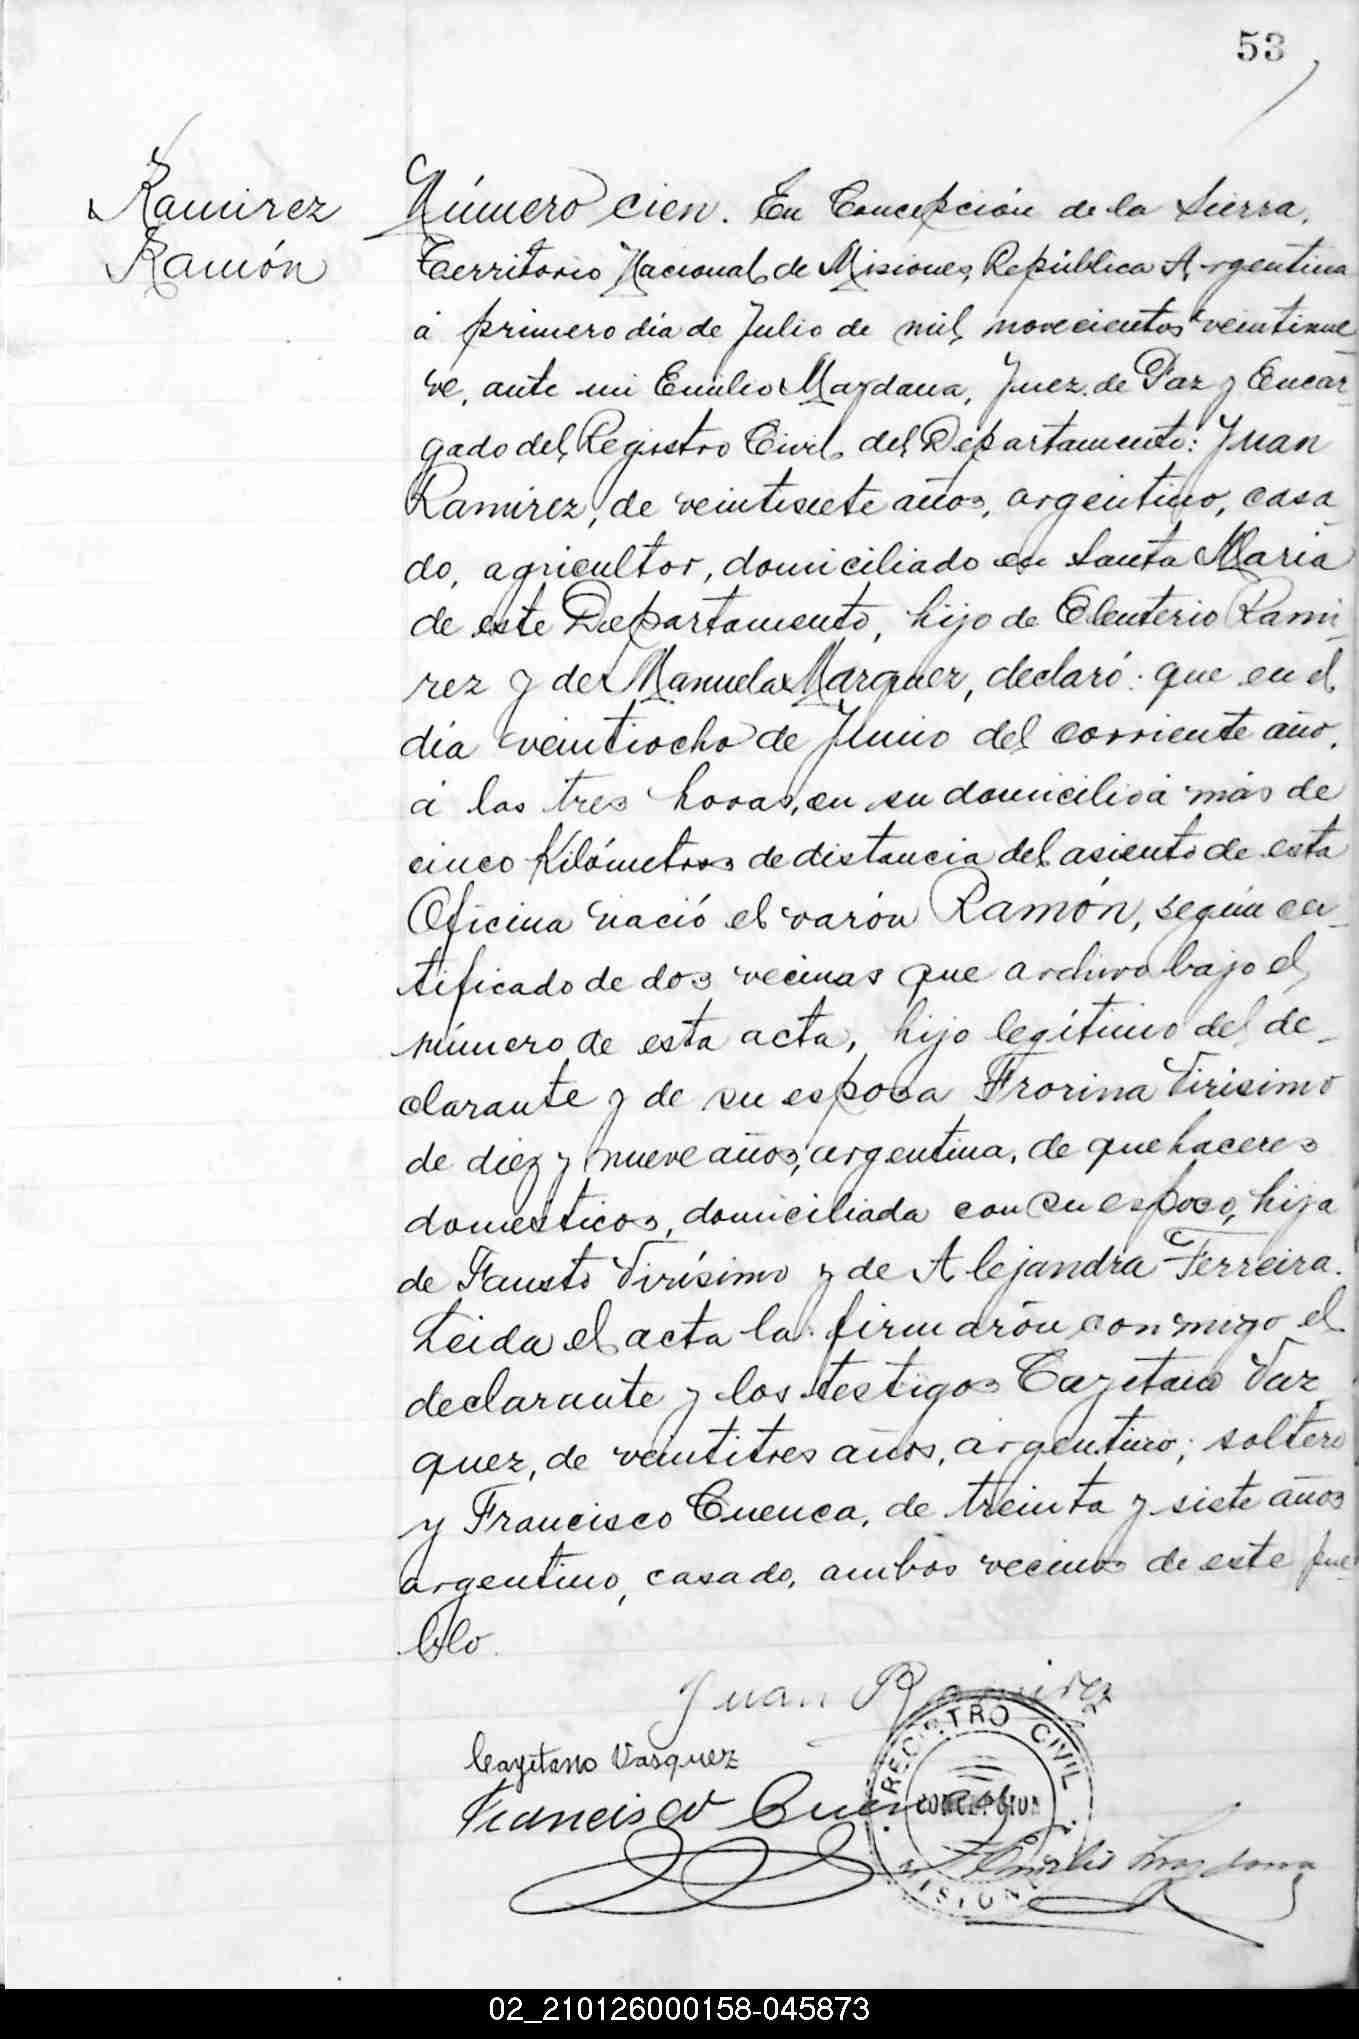 53
Ramirez
Ramón
Número cien. En Concepción de la Sierra,
Territorio Nacional de Misiones, República Argentina
á primero dia de Julio de mil novecientos veintinue
ve, ante mi Emilio Maydana, Juez de Paz y Encar-
gado del Registro Civil del Departamento: Juan
Ramirez, de veintisiete años, argentino, casa-
do, agricultor, domiciliado en Santa Maria
de este Departamento, hijo de Eleuterio Rami-
rez y de Manuela Marquez, declaró: que en el
dia veintiocho de Junio del corriente año,
á las tres horas, en su domicilio á más de
cinco Kilómetros de distancia del asiento de esta
Oficina nació el varón Ramón, según cer-
tificado de dos vecinas que archivo bajo el
número de esta acta, hijo legítimo del de-
clarante y de su esposa Frorina Virisimo
de diez y nueve años, argentina, de quehaceres
domésticos, domiciliada con su esposo, hija
de Fausto Virísimo y de Alejandra Ferreira.
Leida el acta la firmarón conmigo el
declarante y los testigos Cayetano Vaz
quez, de veintitres años, argentino, soltero
y Francisco Cuenca, de treinta y siete años
argentino, casado, ambos vecinos de este pue
blo.
Juan Ramirez
Cayetano Vasquez
Francisco Cuenca
REGISTRO CIVIL
CONCEPCION
MISIONES
Emilio Maydana
02_210126000158-045873